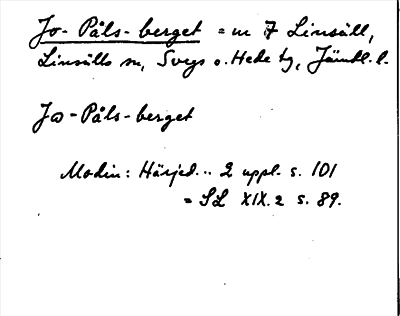 Jo-Påls-berget = nr 7 Linsäll,
Linsälls sn, Svegs o. Hede tg, Jämtl. l.
Jo-Påls-berget
Modin: Härjed... 2 uppl. s. 101
= SL XIX.2 s. 89.